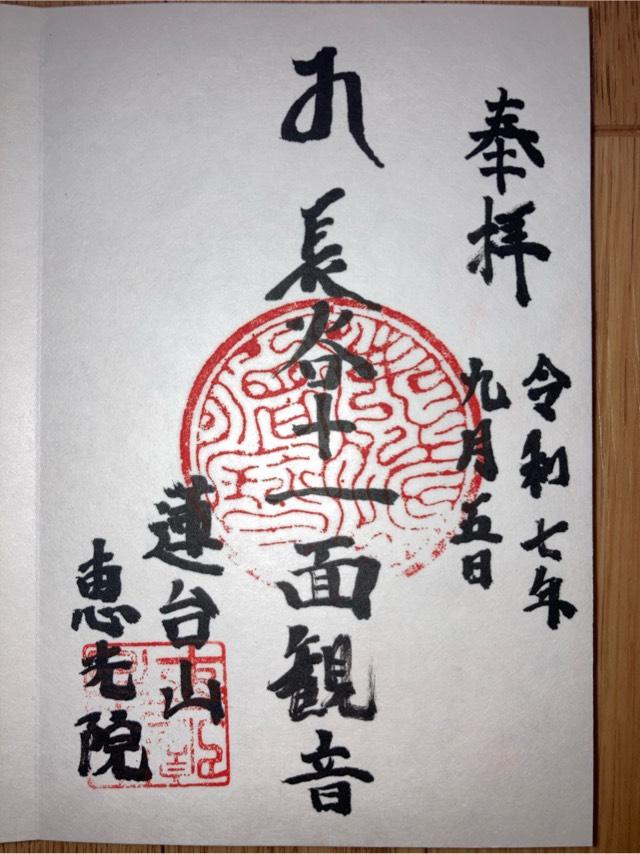 奉拝
令和七年
九月五日
長谷十一面観音
蓮台山
恵光院